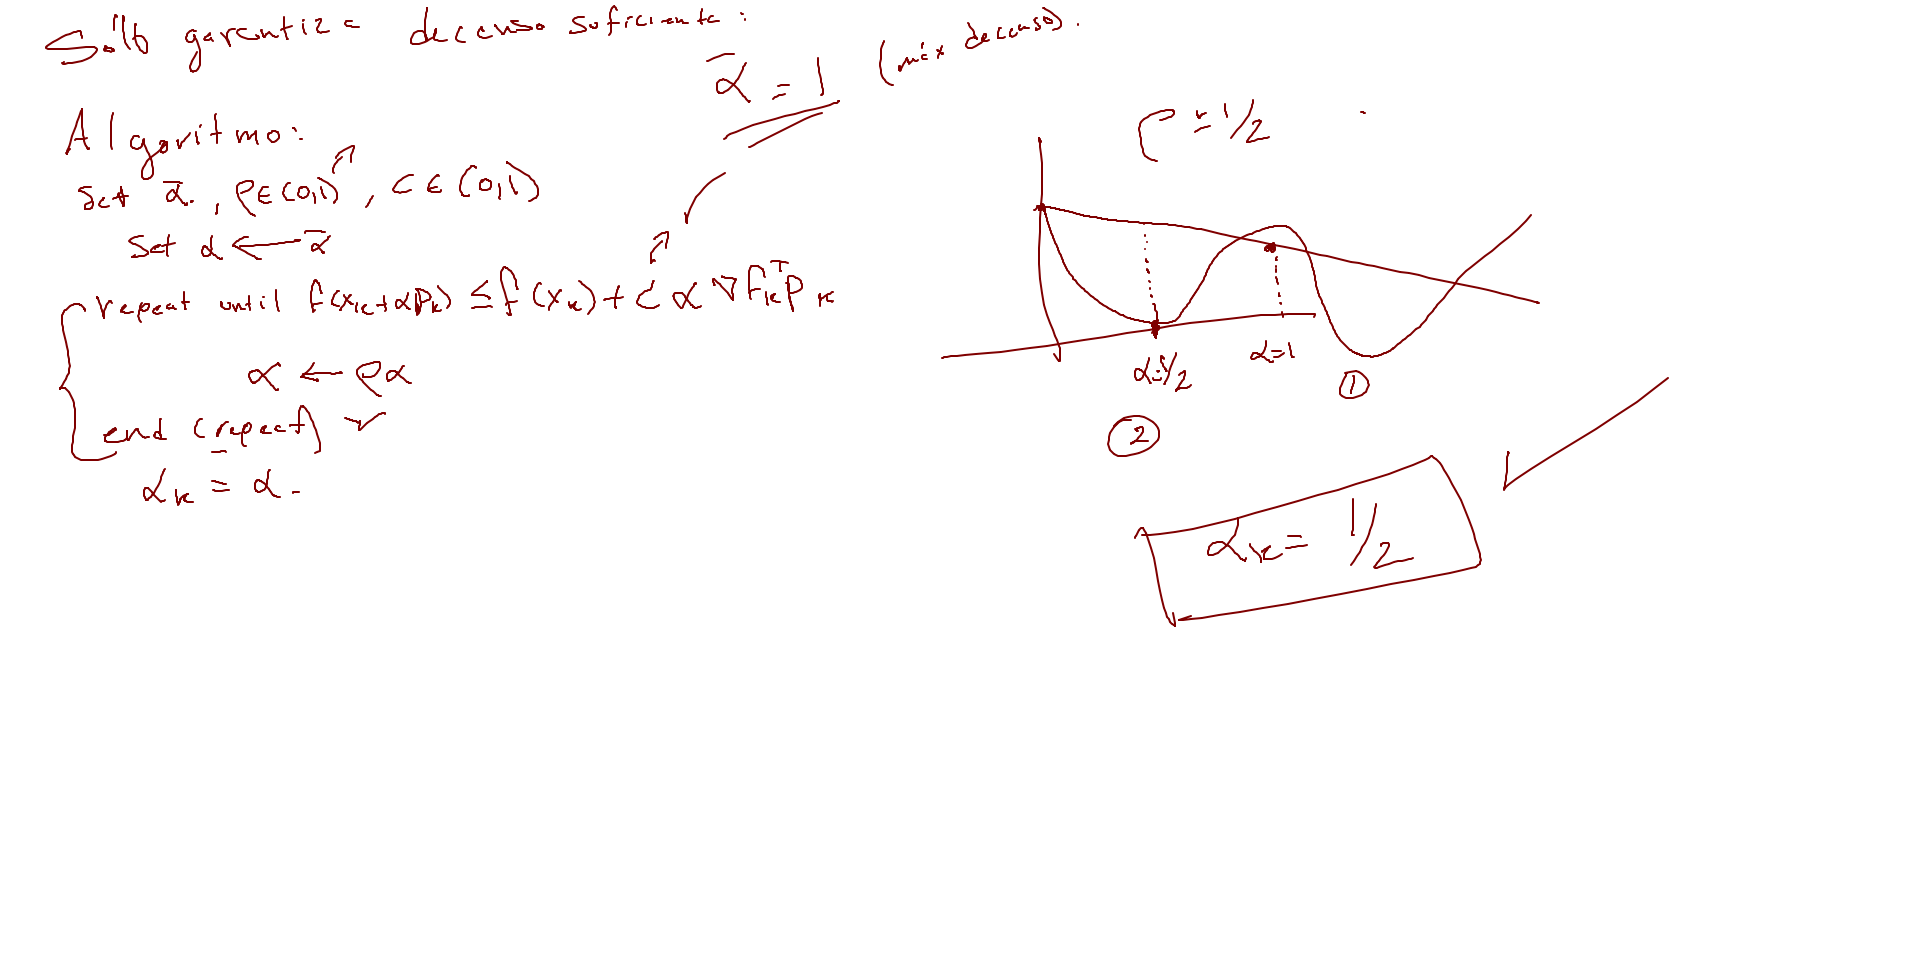 Sólo garantiza decenso suficiente:
ᾱ = 1 (máx decenso).
Algoritmo:
Set ᾱ, ρ∈(0,1), c∈(0,1)
Set α ← ᾱ
repeat until f(xk+αpk) ≤ f(xk) + c α ∇fkᵀpk
α ← ρα
end (repeat)
αk = α.
ρ = 1/2
α=1/2
α=1
①
②
αk = 1/2